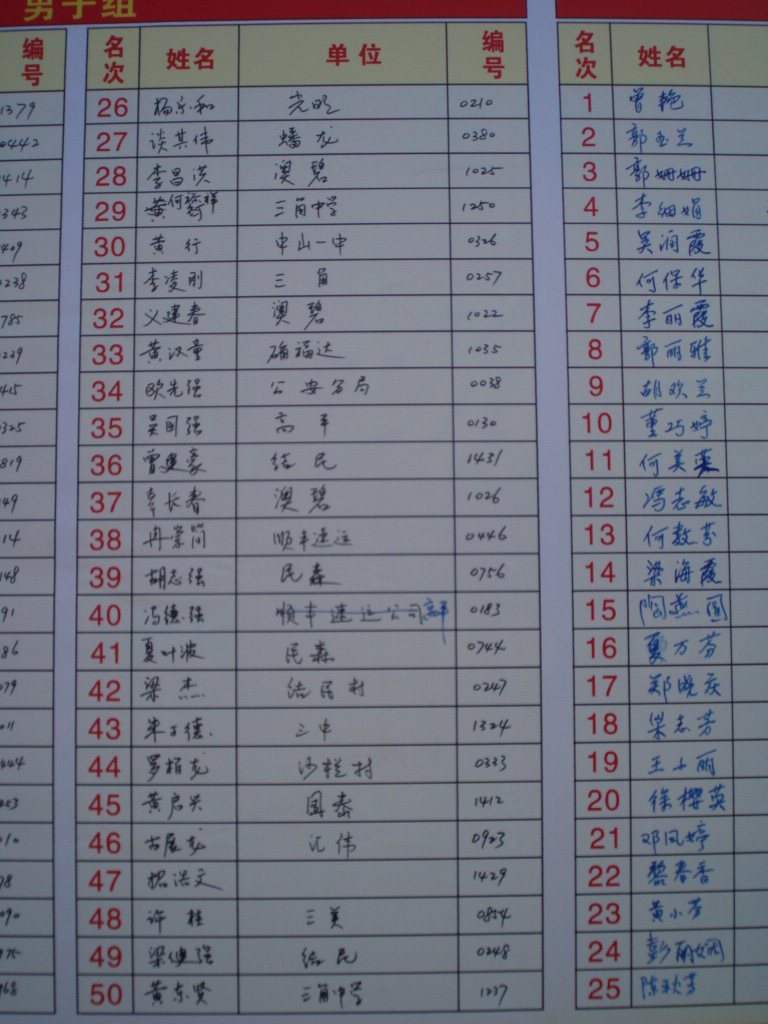 男子组
编号
1379
0442
名次 姓名 单位 编号
26 杨乐和 光明 0210
27 谈其伟 蟠龙 0380
28 李昌洪 澳碧 1025
29 三角中学 1250
30 黄行 中山一中 0326
31 李凌刚 三角 0257
32 义建春 澳碧 1022
33 黄汉童 福达 1035
34 欧先强 公安分局 0038
35 吴国强 高平 0130
36 曾建豪 结民 1431
37 长春 澳碧 1026
38 冉崇简 顺丰速运 0446
39 胡志强 民森 0756
40 冯德强 顺丰速运公司 高平 0183
41 夏叶波 民森 0744
42 梁杰 结民村 0247
43 朱丁德 三中 1324
44 罗相龙 沙栏村 0333
45 黄启兴 国泰 1412
46 古展龙 汇伟 0923
47 洪文 1429
48 许桂 三美 0854
49 梁健强 结民 0248
50 黄东贤 三角中学 1237
名次 姓名
1 曾艳
2 郭玉兰
3 郭姗姗
4 李细娟
5 吴润霞
6 何保华
7 李丽霞
8 郭丽雅
9 胡欢兰
10 董巧婷
11 何美英
12 冯志敏
13 何数芬
14 梁海霞
15 陶燕圆
16 夏万芬
17 郑晓庆
18 梁志芳
19 王小丽
20 徐樱英
21 邓凤婷
22 黎春香
23 黄小芳
24 彭丽娴
25 陈秋芳